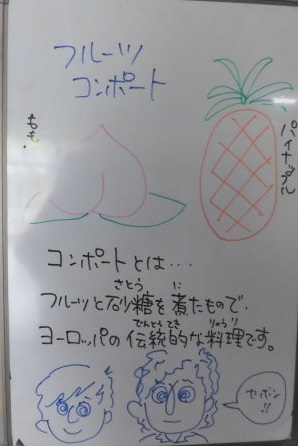 フルーツ
コンポート
もも
パイナップル
コンポートとは・・・
さとう に
フルーツと砂糖を煮たもので、
でんとうてき りょうり
ヨーロッパの伝統的な料理です。
セボン!!